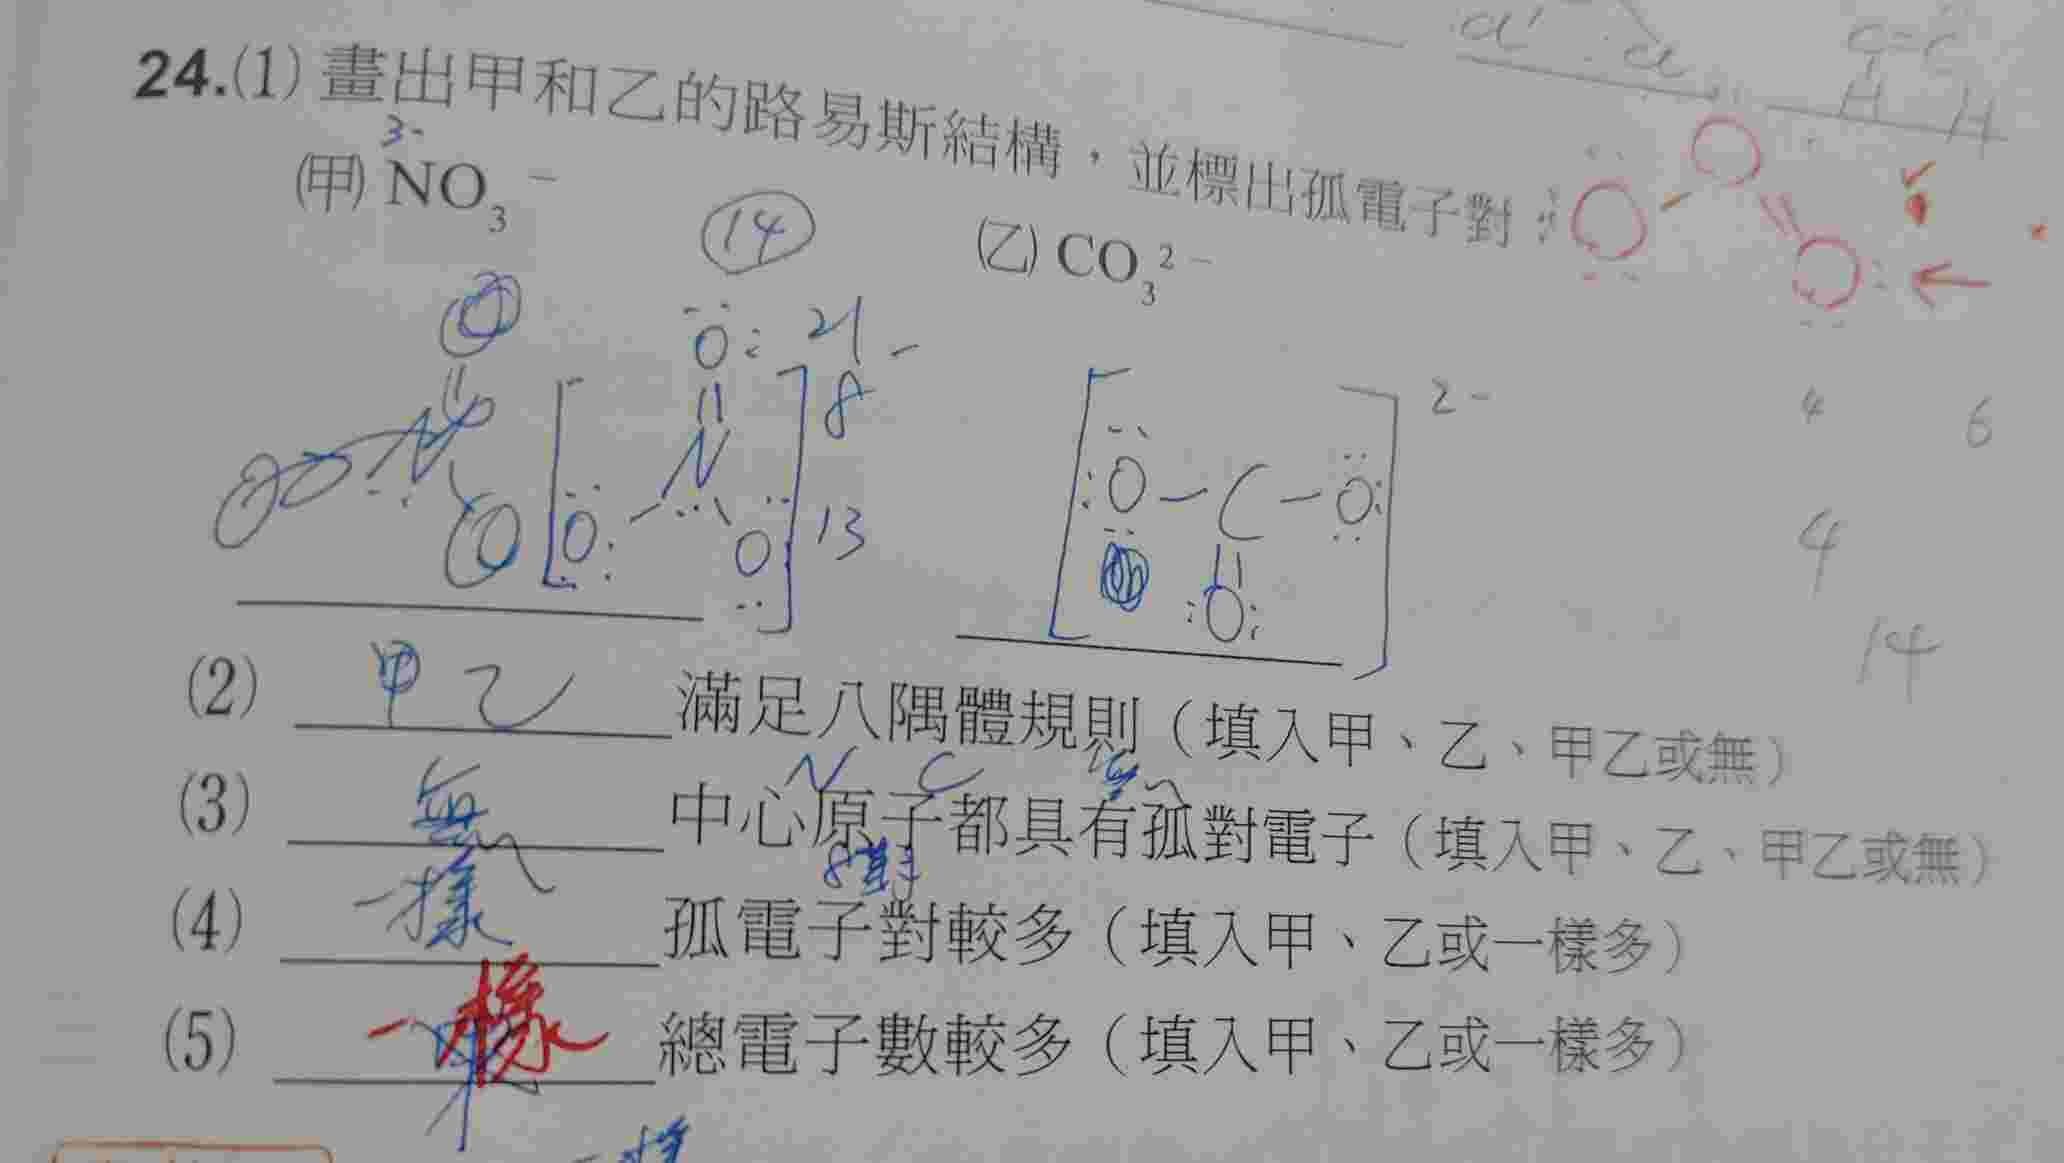 24.(1) 畫出甲和乙的路易斯結構，並標出孤電子對：
3-
(甲) NO₃⁻
(乙) CO₃²⁻
14
21
8
13
2-
4
6
4
14
(2) 甲乙 滿足八隅體規則（填入甲、乙、甲乙或無）
N C
(3) 無 中心原子都具有孤對電子（填入甲、乙、甲乙或無）
8對
(4) 一樣 孤電子對較多（填入甲、乙或一樣多）
(5) 一樣 總電子數較多（填入甲、乙或一樣多）
一樣